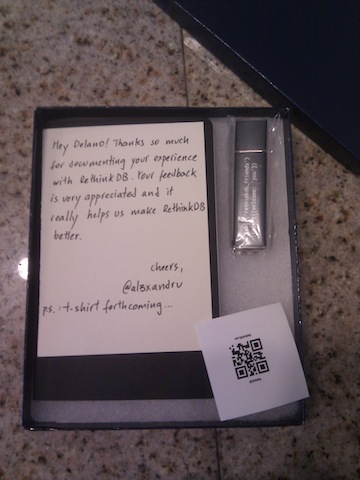 Hey Delano! Thanks so much
for documenting your experience
with RethinkDB. Your feedback
is very appreciated and it
really helps us make RethinkDB
better.
cheers,
@al3xandru
ps. :t-shirt forthcoming...